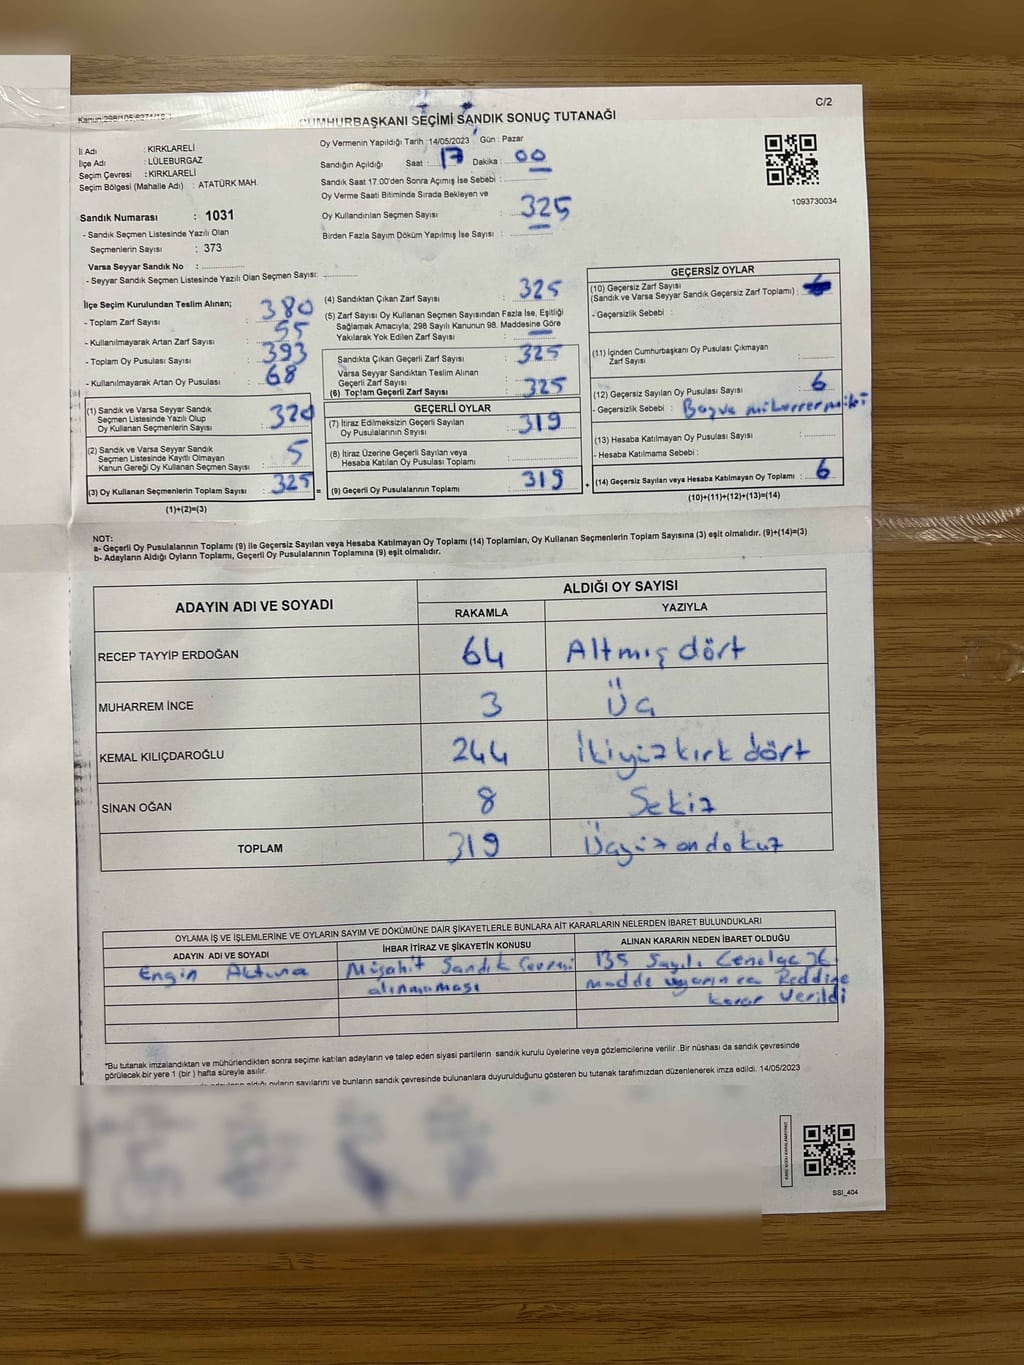 C/2
CUMHURBAŞKANI SEÇİMİ SANDIK SONUÇ TUTANAĞI
İl Adı : KIRKLARELİ
İlçe Adı : LÜLEBURGAZ
Seçim Çevresi : KIRKLARELİ
Seçim Bölgesi (Mahalle Adı) : ATATÜRK MAH.
Sandık Numarası : 1031
- Sandık Seçmen Listesinde Yazılı Olan
Seçmenlerin Sayısı : 373
Varsa Seyyar Sandık No :
- Seyyar Sandık Seçmen Listesinde Yazılı Olan Seçmen Sayısı:
Oy Vermenin Yapıldığı Tarih : 14/05/2023 Gün : Pazar
Sandığın Açıldığı Saat : 17 Dakika : 00
Sandık Saat 17:00'den Sonra Açımış İse Sebebi :
Oy Verme Saati Bitiminde Sırada Bekleyen ve
Oy Kullandırılan Seçmen Sayısı : 325
Birden Fazla Sayım Döküm Yapılmış İse Sayısı :
1093730034
İlçe Seçim Kurulundan Teslim Alınan;
- Toplam Zarf Sayısı : 380
- Kullanılmayarak Artan Zarf Sayısı : 55
- Toplam Oy Pusulası Sayısı : 393
- Kullanılmayarak Artan Oy Pusulası : 68
(1) Sandık ve Varsa Seyyar Sandık
Seçmen Listesinde Yazılı Olup
Oy Kullanan Seçmenlerin Sayısı : 320
(2) Sandık ve Varsa Seyyar Sandık
Seçmen Listesinde Kayıtlı Olmayan
Kanun Gereği Oy Kullanan Seçmen Sayısı : 5
(3) Oy Kullanan Seçmenlerin Toplam Sayısı : 325 =
(1)+(2)=(3)
(4) Sandıktan Çıkan Zarf Sayısı : 325
(5) Zarf Sayısı Oy Kullanan Seçmen Sayısından Fazla İse, Eşitliği
Sağlamak Amacıyla; 298 Sayılı Kanunun 98. Maddesine Göre
Yakılarak Yok Edilen Zarf Sayısı :
Sandıkta Çıkan Geçerli Zarf Sayısı : 325
Varsa Seyyar Sandıktan Teslim Alınan
Geçerli Zarf Sayısı :
(6) Toplam Geçerli Zarf Sayısı : 325
GEÇERLİ OYLAR
(7) İtiraz Edilmeksizin Geçerli Sayılan
Oy Pusulalarının Sayısı : 319
(8) İtiraz Üzerine Geçerli Sayılan veya
Hesaba Katılan Oy Pusulası Toplamı :
(9) Geçerli Oy Pusulalarının Toplamı : 319 +
GEÇERSİZ OYLAR
(10) Geçersiz Zarf Sayısı
(Sandık ve Varsa Seyyar Sandık Geçersiz Zarf Toplamı) :
- Geçersizlik Sebebi :
(11) İçinden Cumhurbaşkanı Oy Pusulası Çıkmayan
Zarf Sayısı :
(12) Geçersiz Sayılan Oy Pusulası Sayısı : 6
- Geçersizlik Sebebi :
(13) Hesaba Katılmayan Oy Pusulası Sayısı :
- Hesaba Katılmama Sebebi :
(14) Geçersiz Sayılan veya Hesaba Katılmayan Oy Toplamı : 6
(10)+(11)+(12)+(13)=(14)
NOT:
a- Geçerli Oy Pusulalarının Toplamı (9) ile Geçersiz Sayılan veya Hesaba Katılmayan Oy Toplamı (14) Toplamları, Oy Kullanan Seçmenlerin Toplam Sayısına (3) eşit olmalıdır. (9)+(14)=(3)
b- Adayların Aldığı Oyların Toplamı, Geçerli Oy Pusulalarının Toplamına (9) eşit olmalıdır.
ADAYIN ADI VE SOYADI ALDIĞI OY SAYISI
RAKAMLA YAZIYLA
RECEP TAYYİP ERDOĞAN 64 Altmış dört
MUHARREM İNCE 3 Üç
KEMAL KILIÇDAROĞLU 244 İkiyüz kırk dört
SİNAN OĞAN 8 Sekiz
TOPLAM 319 Üçyüz on dokuz
OYLAMA İŞ VE İŞLEMLERİNE VE OYLARIN SAYIM VE DÖKÜMÜNE DAİR ŞİKAYETLERLE BUNLARA AİT KARARLARIN NELERDEN İBARET BULUNDUKLARI
ADAYIN ADI VE SOYADI İHBAR İTİRAZ VE ŞİKAYETİN KONUSU ALINAN KARARIN NEDEN İBARET OLDUĞU
Engin Aktuna Müşahit Sandık Çevresi 135 Sayılı Genelge
alınmaması madde uyarınca Reddine
karar verildi
*Bu tutanak imzalandıktan ve mühürlendikten sonra seçime katılan adayların ve talep eden siyasi partilerin sandık kurulu üyelerine veya gözlemcilerine verilir .Bir nüshası da sandık çevresinde
görülecek bir yere 1 (bir ) hafta süreyle asılır.
oyların sayılarını ve bunların sandık çevresinde bulunanlara duyurulduğunu gösteren bu tutanak tarafımızdan düzenlenerek imza edildi. 14/05/2023
SSİ_404